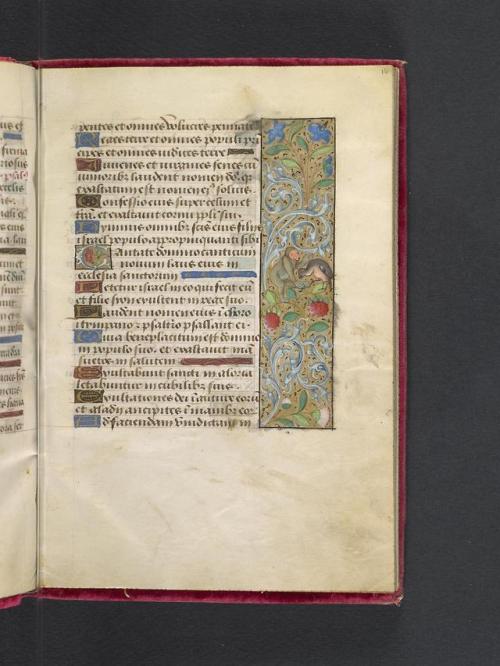 pentes et omnes volucres pennate
Reges terre et omnes populi pri
cipes et omnes iudices terre
Iuvenes et virgines senes cū
iuniorib₃ laudent nomen dñi q̄
exaltatum est nomen eiꝰ solius.
Confessio eius super celum et
terrā. et exaltavit cornu ppli sui.
Hymnus omnib₃ scīs eius filiis
israel populo appropinquanti sibi
Cantate domino canticum
novum laus eius in
ecclesia sanctorum
Letetur israel in eo qui fecit eū
et filie syon exultent in rege suo.
Laudent nomen eius ī choro
ī tympano ⁊ psaltīo psallant ei.
Quia beneplacitum est domino
in populo suo. et exaltavit mā
suetos in salutem
Exultabunt sancti in gloria
letabuntur in cubilib₃ suis
Exultationes dei ī gutture eorū
et gladii ancipites ī manib₃ eor̄
Ad faciendam vindictam in